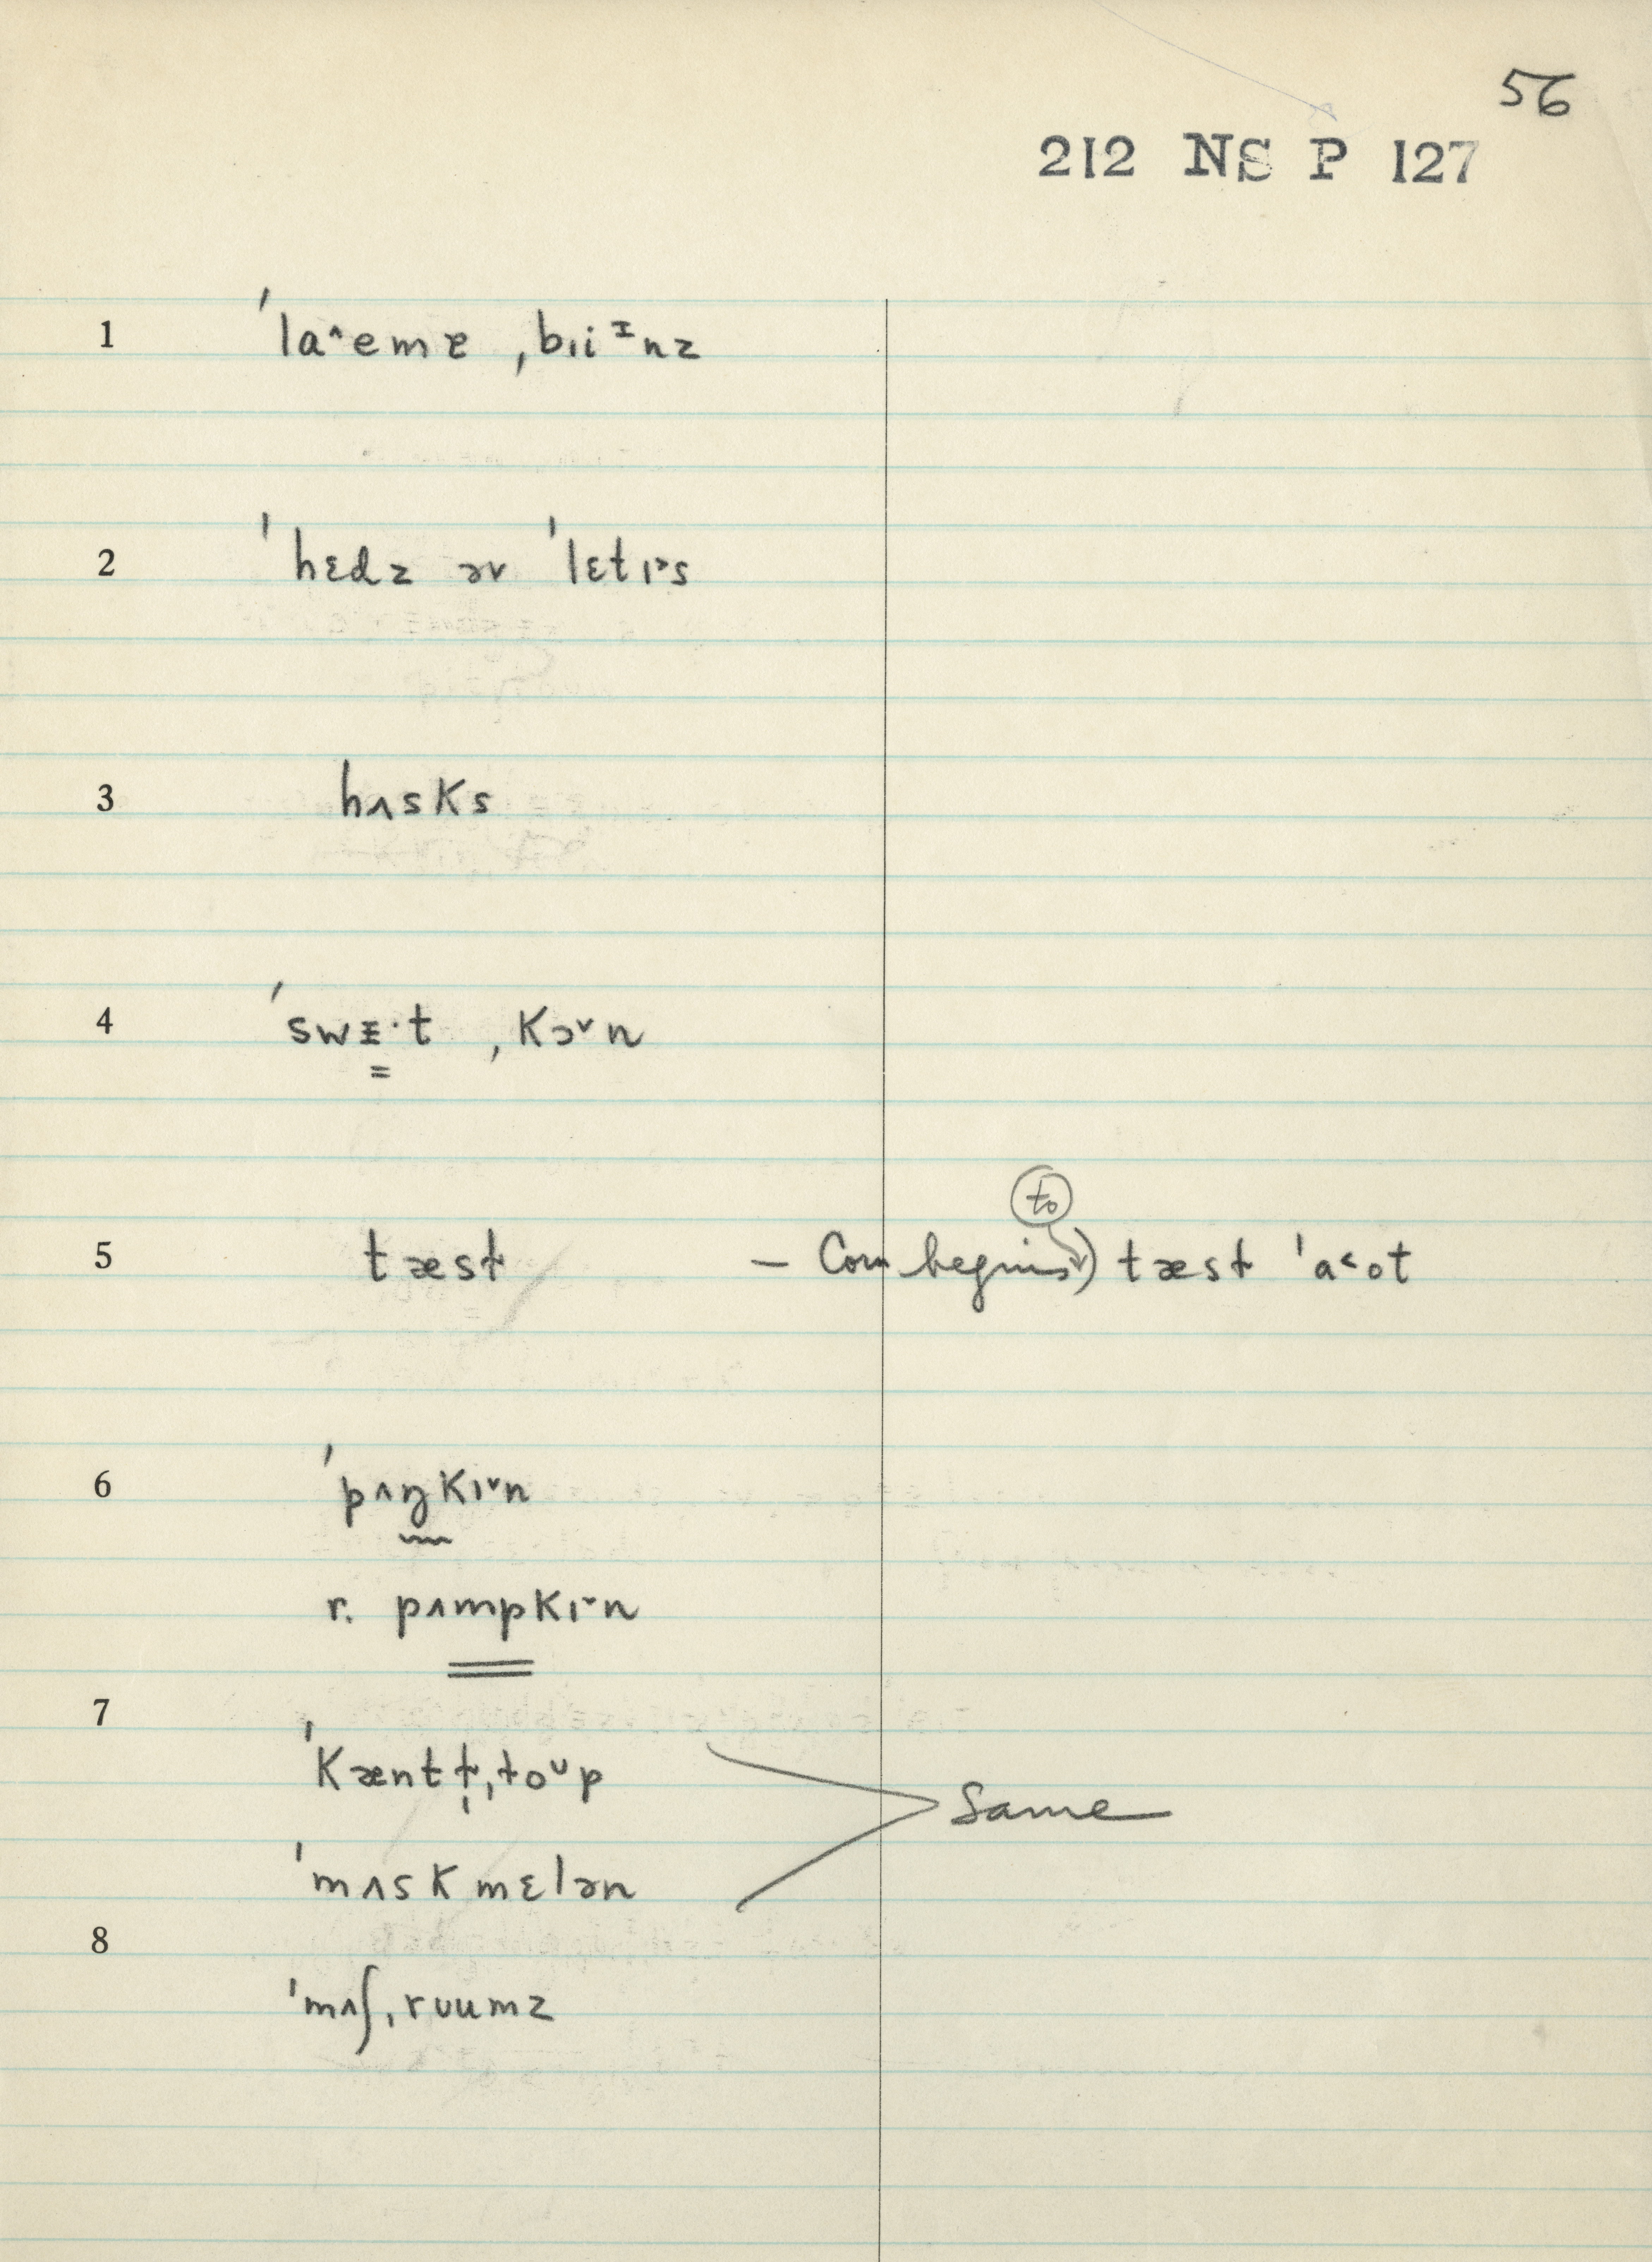 56
212 NS P 127
1 ˈlaˆemɐ ˌbɪiᶦnz
2 ˈhɛdz əv ˈlɛtɪ˃s
3 hʌsks
4 ˈswɪ·t ˌkɔˇn
5 tæsɫ — Corn begins to) tæsɫ ˈa˂ot
6 ˈpʌŋkɪˇn
r. pʌmpkɪˇn
7 ˈkæntɫ̩ˌɫoᶷp
Same
ˈmʌskmɛlən
8
ˈmʌʃˌrʊumz